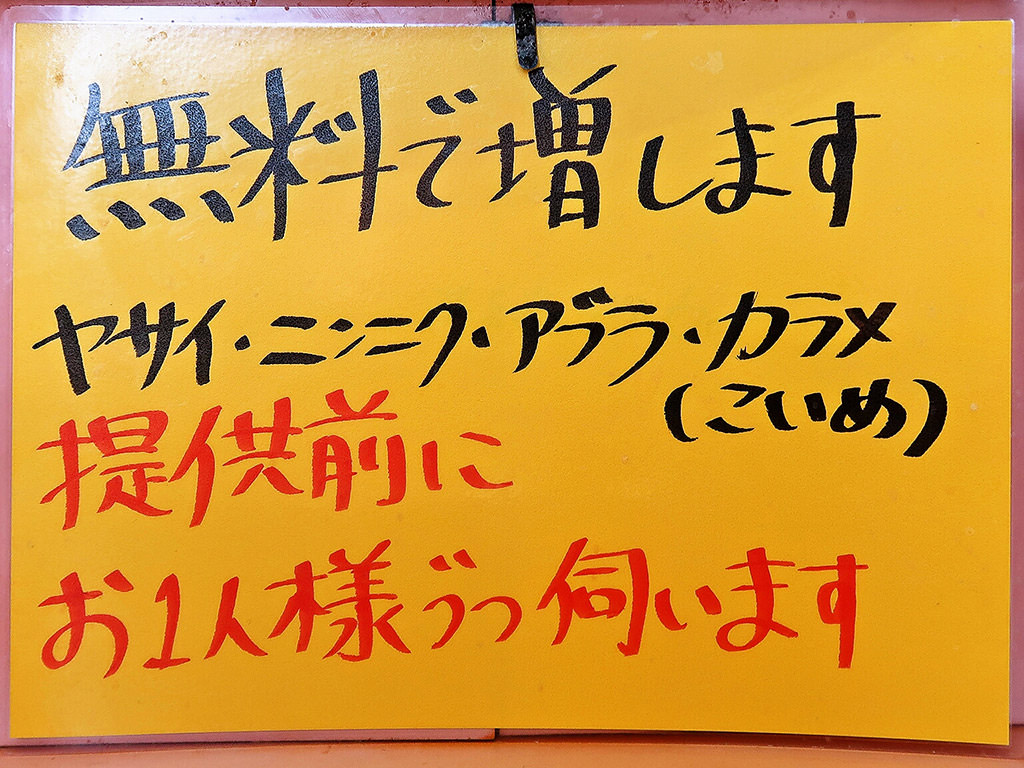 無料で増します
ヤサイ・ニンニク・アブラ・カラメ
(こいめ)
提供前に
お1人様づつ伺います